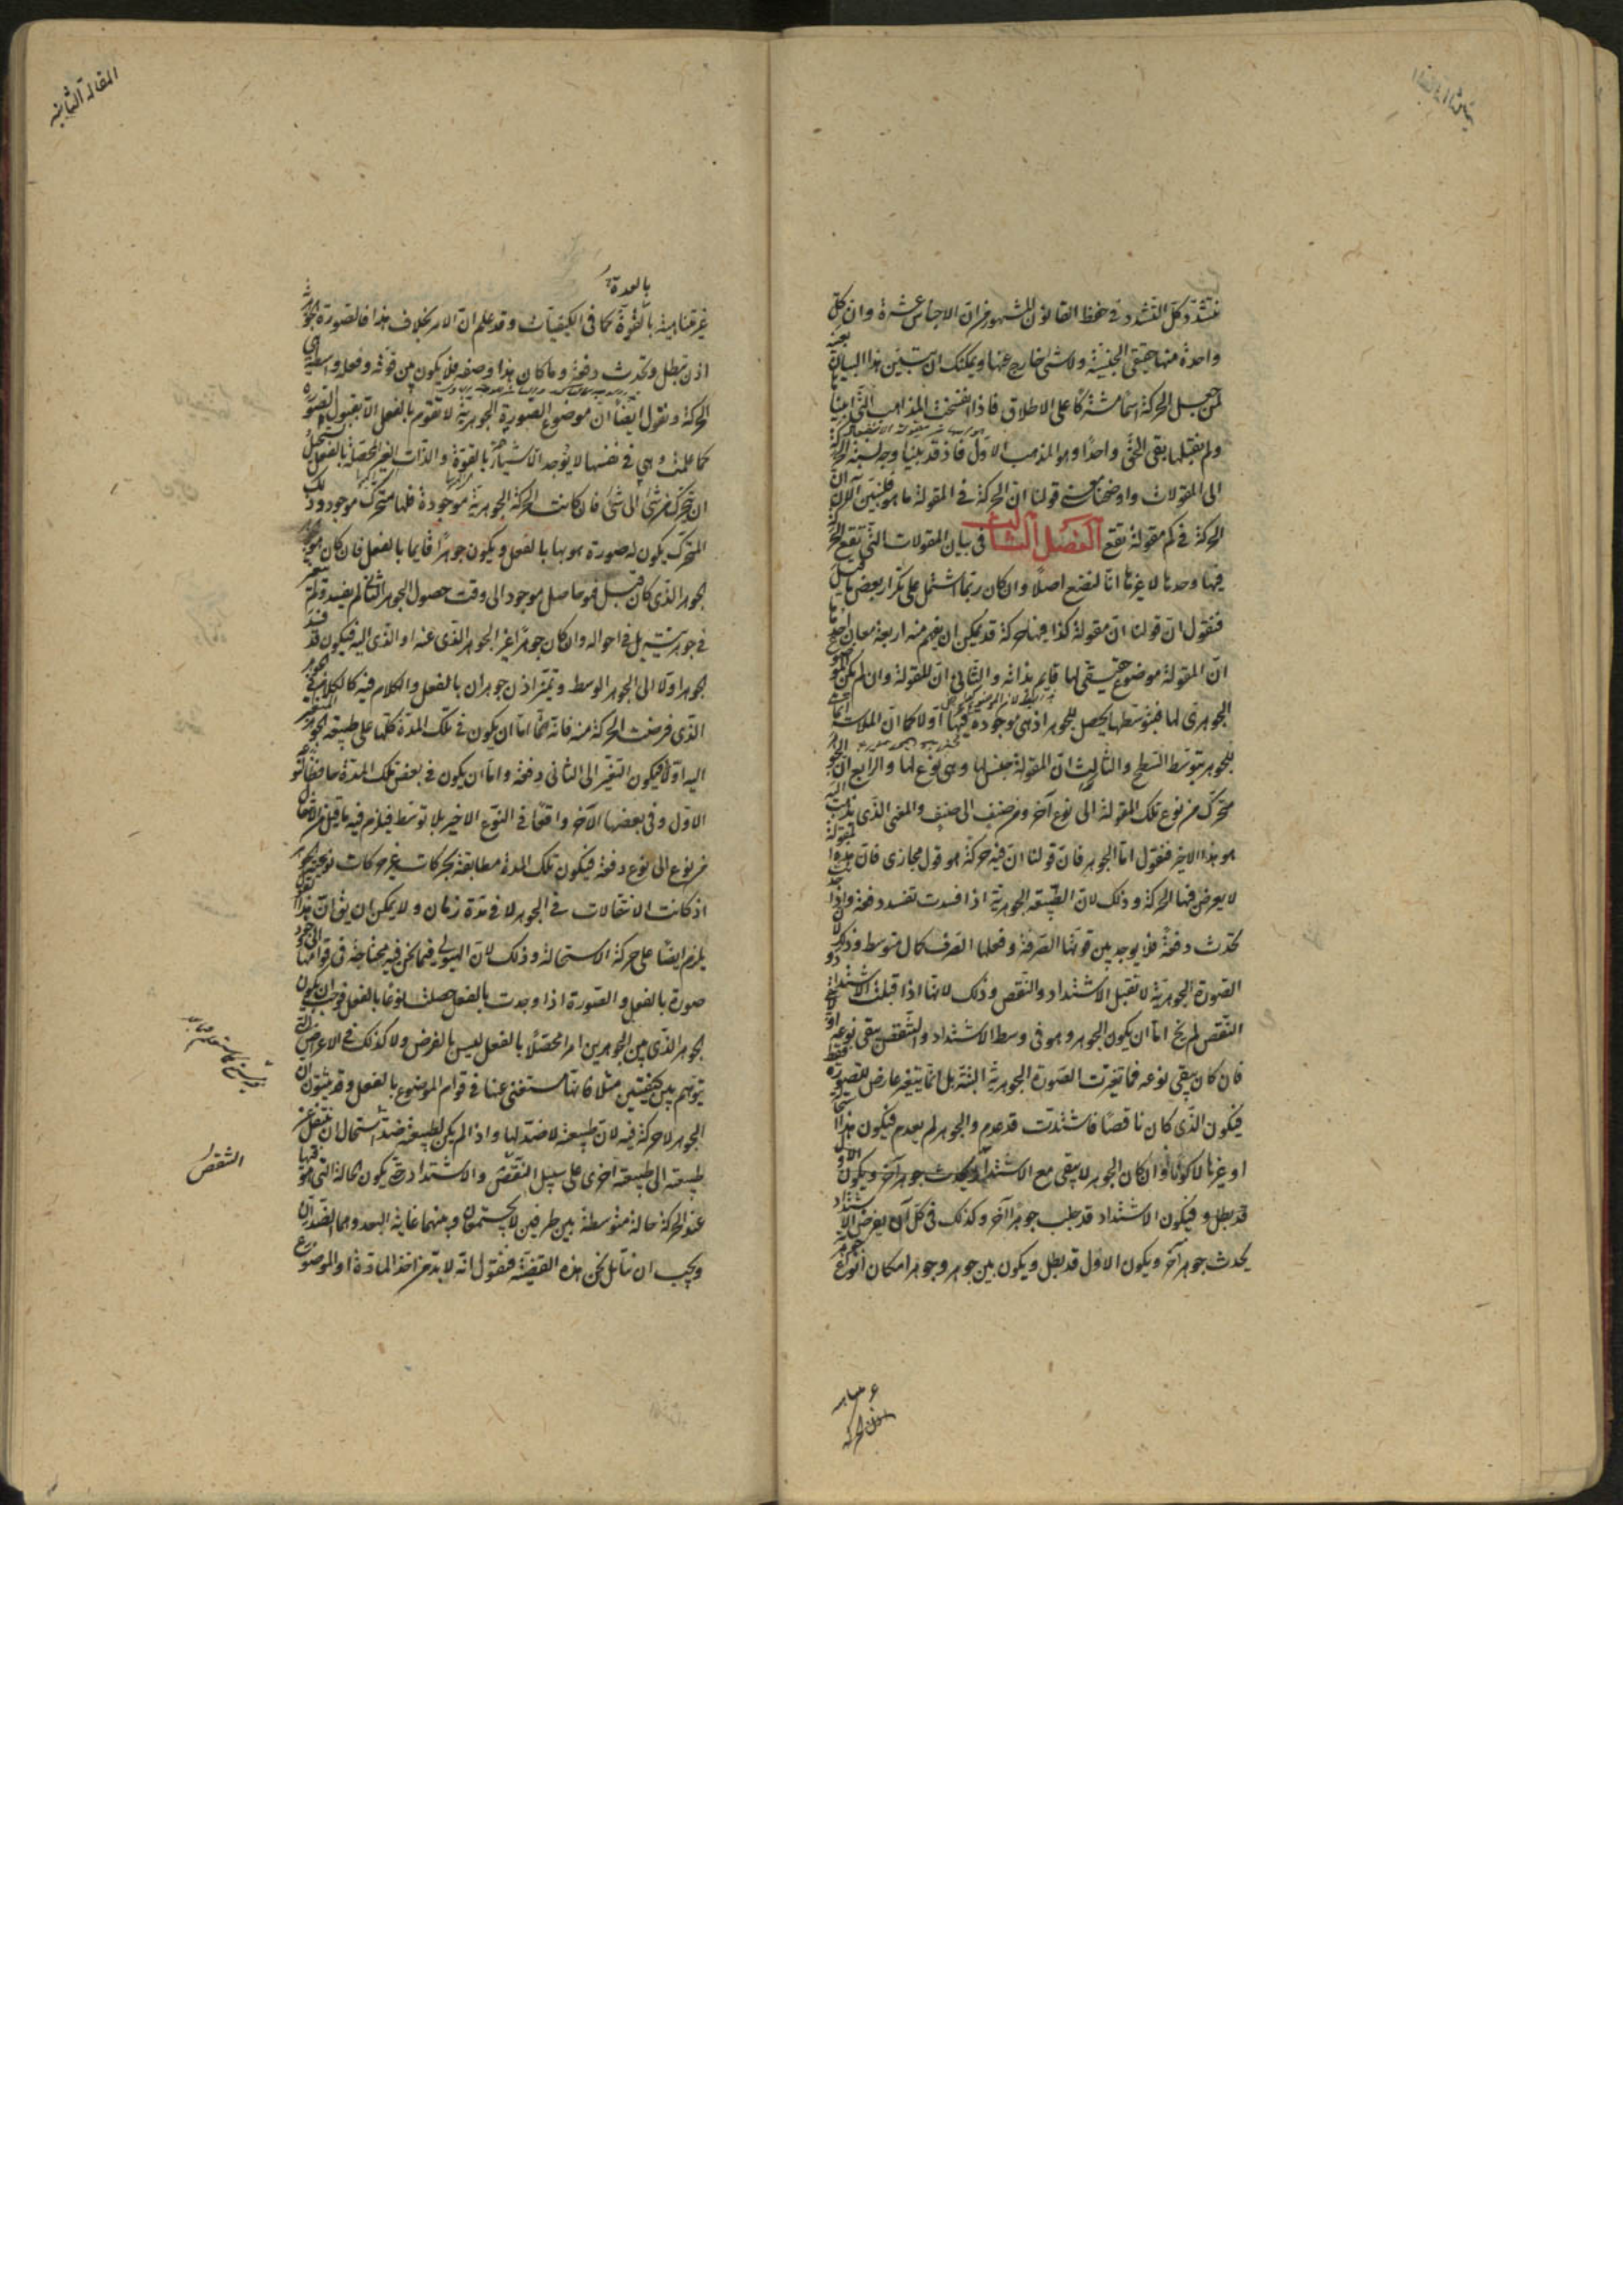 نتشدد كل التشدد فى حفظ القانون المشهور من ان الاجناس عشرة وان كل
واحدة منها حقيقى الجنسية ولا شئ خارج عنها ويمكنك ان تبين هذا البيان بعينه
لمن جعل الحركة اسما مشتركا على الاطلاق فاذا انفسخت المذاهب التى
ولم نقبلها بقى الحق واحدا وهو المذهب الاول فاذ قد بينا وجه نسبة الحركة
الى المقولات واوضحنا معنى قولنا ان الحركة فى المقولة ما هو فلنبين الآن ان
الحركة فى كم مقولة تقع الفصل الثالث فى بيان المقولات التى تقع الحركة
فيها وحدها لا غيرها انا لنضع اصلا وان كان ربما اشتمل على تكرار بعض ما قيل
فنقول ان قولنا ان مقولة كذا فيها حركة قد يمكن ان يفهم منه اربعة معان احدها
ان المقولة موضوع حقيقى لها قايم بذاته والثانى ان المقولة وان لم يكن الموضوع
الجوهرى لها فبتوسطها يحصل للجوهر اذ هى موجودة فيها اولا كما ان الملاسة انما
للجوهر بتوسط السطح والثالث ان المقولة جنس لها وهى نوع لها والرابع ان الجوهر
متحرك من نوع تلك المقولة الى نوع آخر ومن صنف الى صنف والمعنى الذى نذهب اليه
هو هذا الاخير فنقول اما الجوهر فان قولنا ان فيه حركة هو قول مجازى فان هذه المقولة
لا يعرض فيها الحركة وذلك لان الطبيعة الجوهرية اذا فسدت تفسد دفعة واذا حدثت
تحدث دفعة فلا يوجد بين قوتها الصرفة وفعلها الصرف كمال متوسط وذلك لان
الصورة الجوهرية لا تقبل الاشتداد والتنقص وذلك لانها اذا قبلت الاشتداد
التنقص لم يخ اما ان يكون الجوهر وهو فى وسط الاشتداد والتنقص يبقى نوعه او لا
فان كان يبقى نوعه فما تغيرت الصورة الجوهرية البتة بل انما يتغير عارض للصورة فقط
فيكون الذى كان ناقصا فاشتدت قد عدم والجوهر لم يعدم فيكون هذا استحالة
او غيرها لا كونا وان كان الجوهر لا يبقى مع الاشتداد يحدث جوهر آخر ويكون الاول
قد بطل و فيكون الاشتداد قد جلب جوهرا آخر وكذلك فى كل آن يفرض الاشتداد
يحدث جوهر آخر ويكون الاول قد بطل ويكون بين جوهر وجوهر امكان انواع جوهرية
المقالة الثانية
بالعدة
غير متناهية بالقوة كما فى الكيفيات وقد علم ان الامر بخلاف هذا فالصورة الجوهرية
اذن تبطل وتحدث دفعة وما كان هذا وصفه فلا يكون بين قوته وفعله واسطة هى
الحركة ونقول ايضا ان موضوع الصورة الجوهرية لا تقوم بالفعل الا بقبول الصورة
كما علمت وهى فى نفسها لا يوجد الا شيئا بالقوة والذات الغير المحصلة بالفعل يستحيل
ان تتحرك من شئ الى شئ فان كانت الحركة الجوهرية موجودة فلها متحرك موجود وذلك
المتحرك يكون له صورة هو بها بالفعل ويكون جوهرا قايما بالفعل فان كان هو
الجوهر الذى كان قبل فهو حاصل موجود الى وقت حصول الجوهر الثانى لم يفسد ولم يتغير
فى جوهريته بل فى احواله وان كان جوهرا غير الجوهر الذى عنه او الذى اليه فيكون قد فسد
الجوهر اولا الى الجوهر الوسط وتميز اذن جوهران بالفعل والكلام فيه كالكلام فى الجوهر
الذى فرضت الحركة منه فانه اما ان يكون فى تلك المدة كلها على طبيعة الجوهر المتغير
اليه اولا فيكون التغير الى الثانى دفعة واما ان يكون فى بعض تلك المدة حافظا لنوعه
الاول وفى بعضها الآخر واقعا فى النوع الاخير بلا توسط فيلزم فيه ما قيل من الانتقال
من نوع الى نوع دفعة فيكون تلك المدة مطابقة بحركات غير حركات نوعية الجوهر
اذ كانت الانتقالات فى الجوهر لا فى مدة زمان ولا يمكن ان يق ان هذا القول
يلزم ايضا على حركة الاستحالة وذلك لان الهيولى فيما نحن فيه محتاجة فى قوامها الى وجود
صورة بالفعل والصورة اذا وجدت بالفعل حصلت نوعا بالفعل فوجب ان يكون
الجوهر الذى بين الجوهرين امرا محصلا بالفعل ليس بالفرض ولا كذلك فى الاعراض التى
يتوهم بين كيفيتين مثلا فانها مستغنى عنها فى قوام الموضوع بالفعل وقد يثبتون ان
الجوهر لا حركة فيه لان طبيعة لا ضد لها واذا لم يكن لطبيعته ضد استحال ان ينتقل عن
طبيعة الى طبيعة اخرى على سبيل التنقص والاشتداد حتى يكون الحالة التى هو فيها
عند الحركة حالة متوسطة بين طرفين لا يجتمعان وبينهما غاية البعد وهما الضدان
ويجب ان نتأمل نحن هذه القضية فنقول انه لا بد من اخذ المادة او الموضوع
التنقص